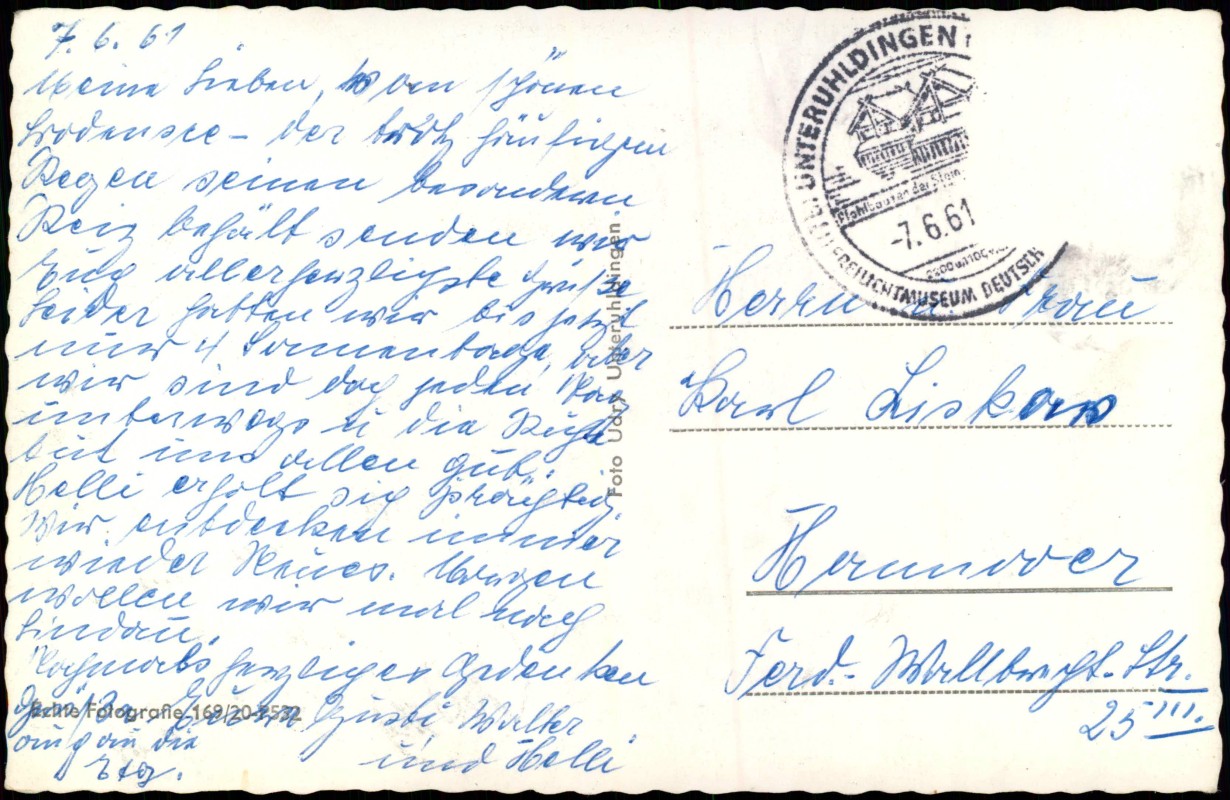 7. 6. 61
Meine Lieben, vom schönen
Bodensee – der trotz häufigem
Regen seinen besonderen
Reiz behält senden wir
Euch allerherzlichste Grüße
Leider hatten wir bis jetzt
nur 4 Sonnentage, aber
wir sind doch jeden Tag
unterwegs u die Ruhe
tut uns allen gut.
Helli erholt sich prächtig.
Wir entdecken immer
wieder Neues. Morgen
wollen wir mal nach
Lindau.
Nochmals herzliches Gedenken
Gusti Walter
und Helli
auch an die
Echte Fotografie 169/20-2532
Foto Udry Unteruhldingen
UNTERUHLDINGEN
Pfahlbauten der Stein
-7.6.61
FREILICHTMUSEUM DEUTSCH
Herrn u. Frau
Karl Liskow
Hannover
Ferd.- Wallbrecht-Str.
25 III.